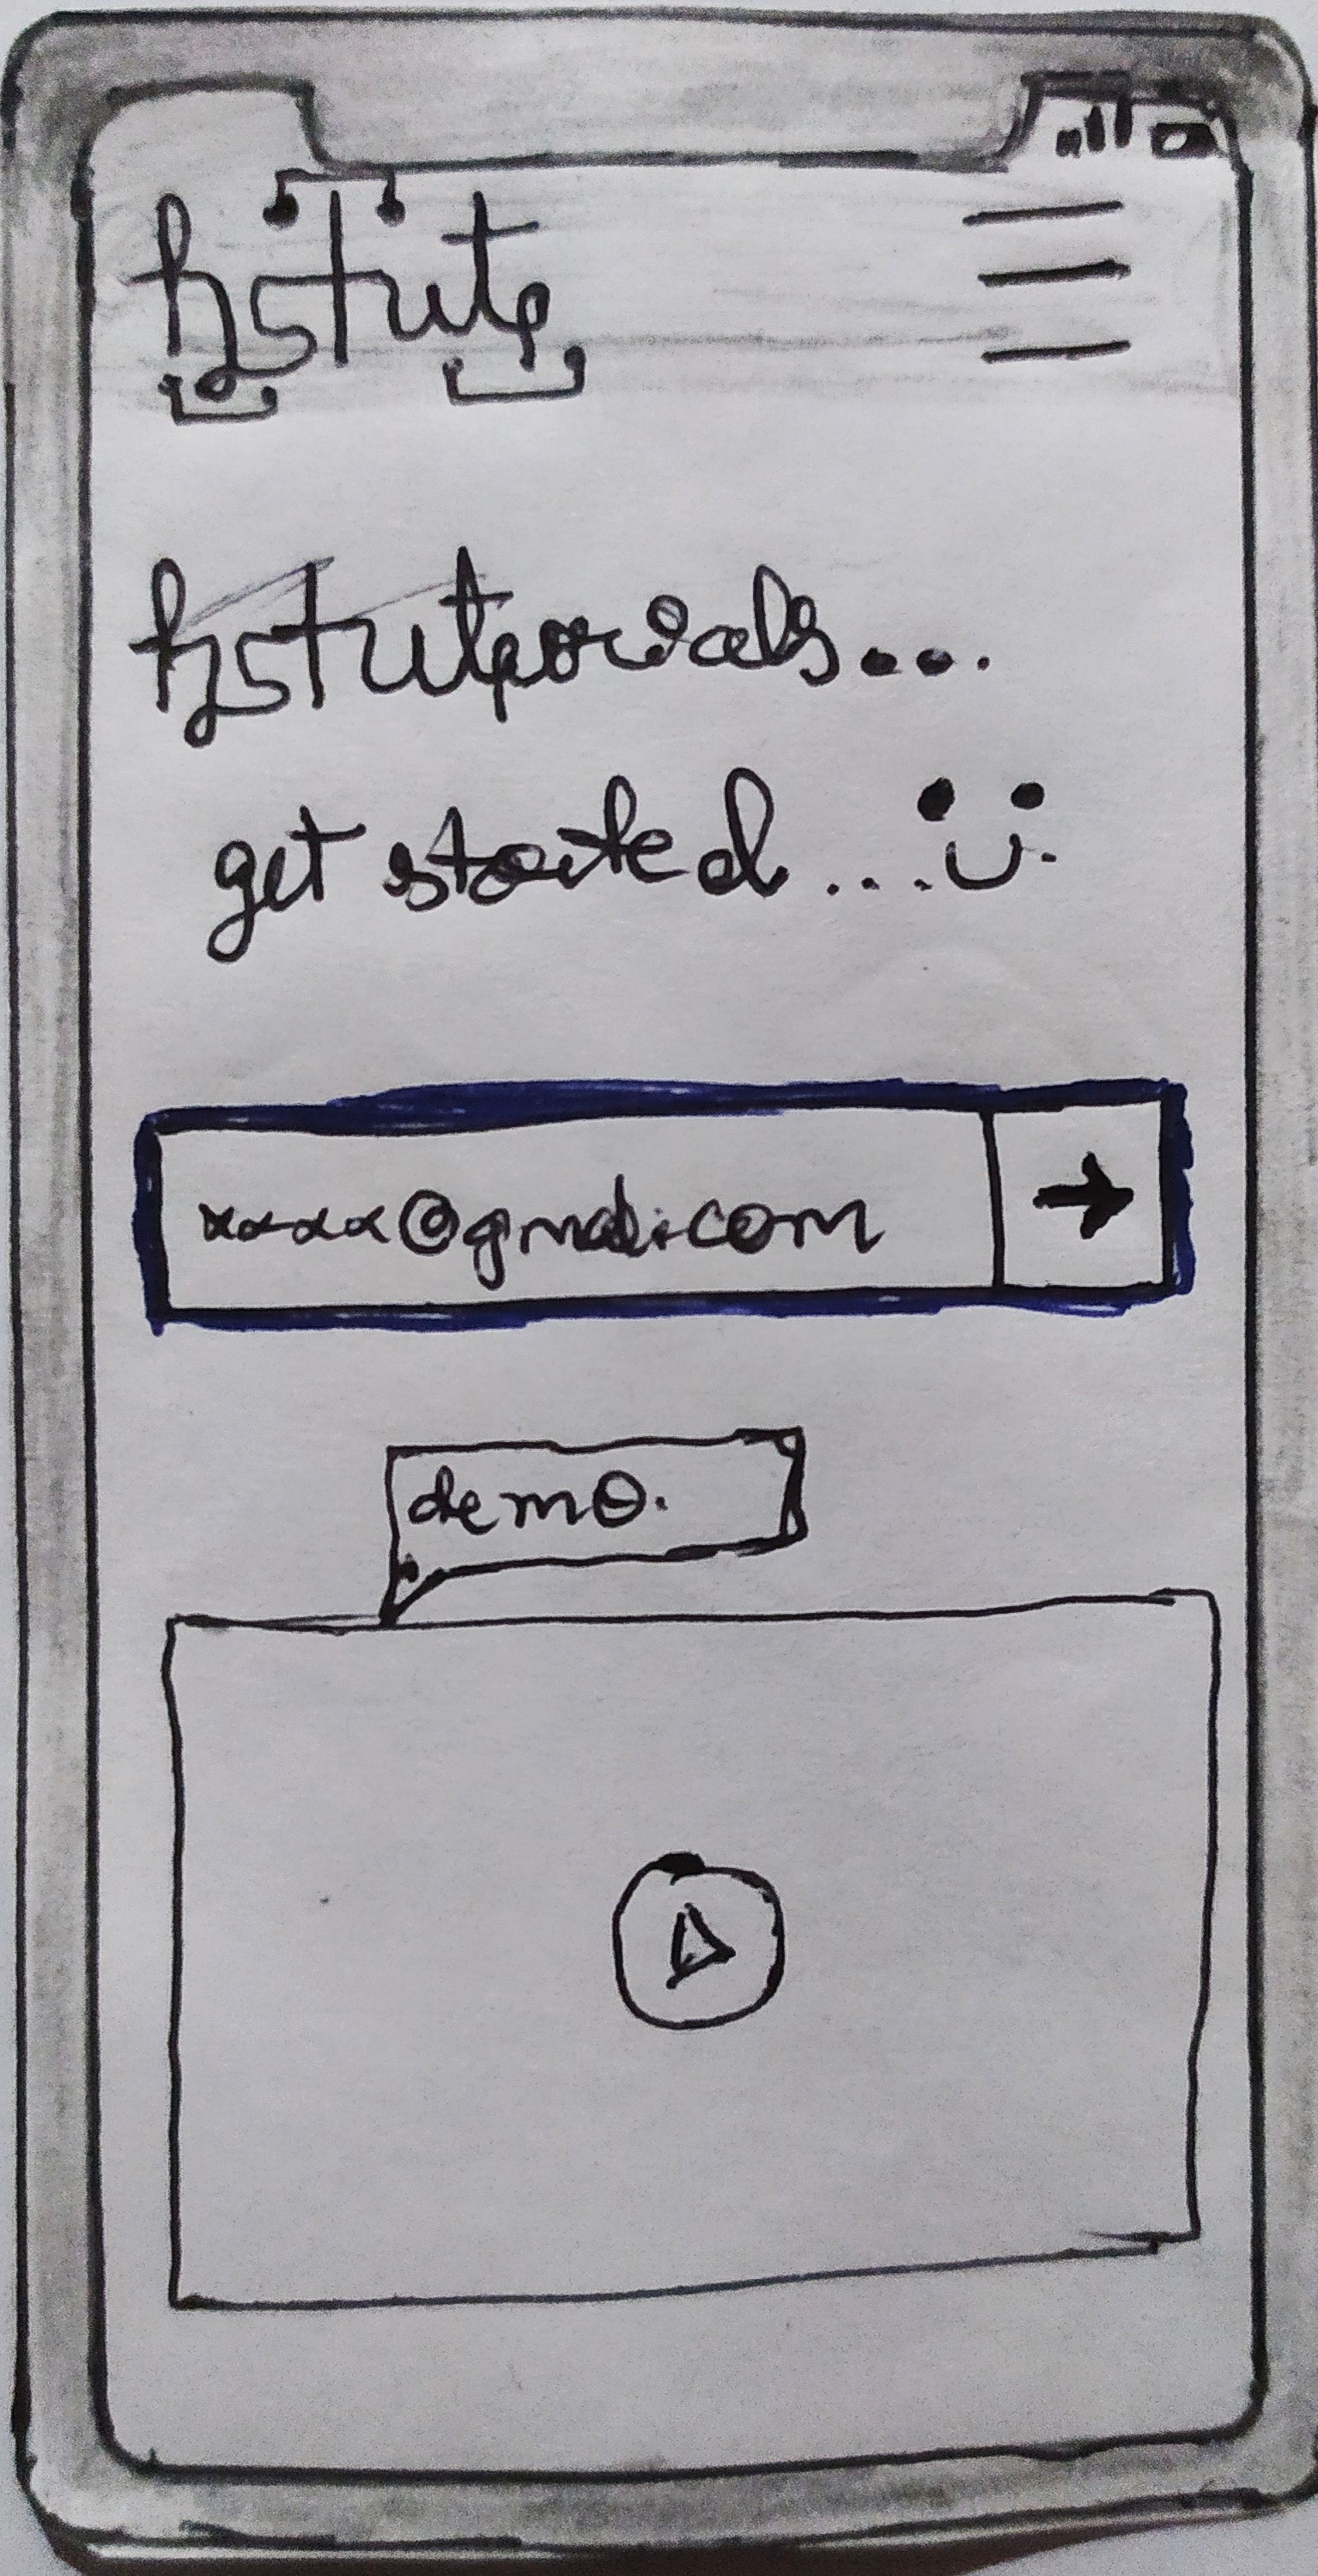 hstute
hstutorials...
get started...
xxxx@gmail.com
demo.